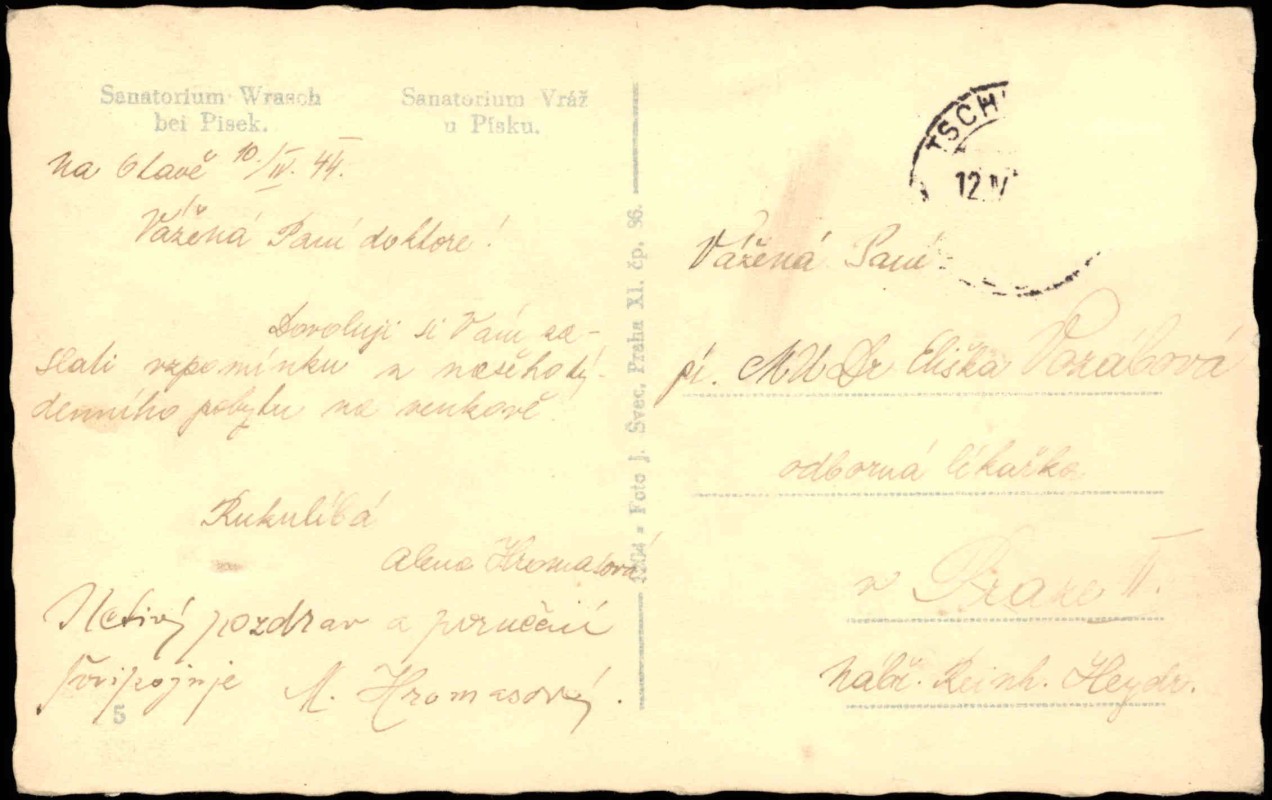 Sanatorium Wrasch
bei Pisek.
Sanatorium Vráž
u Písku.
Na Hlavě 10./IV. 44.
Vážená Paní doktore!
Dovoluji si Vám za-
slati vzpomínku z našeho tý-
denního pobytu na venkově.
Rukulíbá
Alena Hromasová
Uctivý pozdrav a poručení
připojuje A. Hromasový.
5
Foto J. Švec, Praha XI. čp. 96.
TSCH
12.IV
Vážená Paní
pí. MUDr Eliška Vozábová
odborná lékařka
v Praze II.
Nábř. Reinh. Heydr.